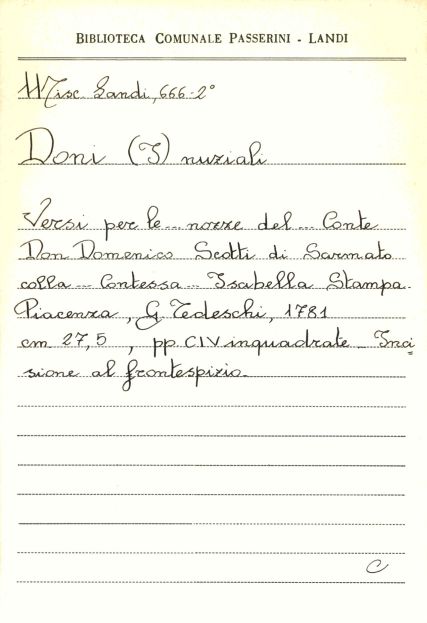 BIBLIOTECA COMUNALE PASSERINI - LANDI
Misc. Landi, 666-2°
Doni (I) nuziali
Versi per le nozze del Conte
Don Domenico Scotti di Sarmato
colla Contessa Isabella Stampa.
Piacenza, G. Tedeschi, 1781
cm 27,5 , pp. CIV inquadrate - Inci
sione al frontespizio.
C